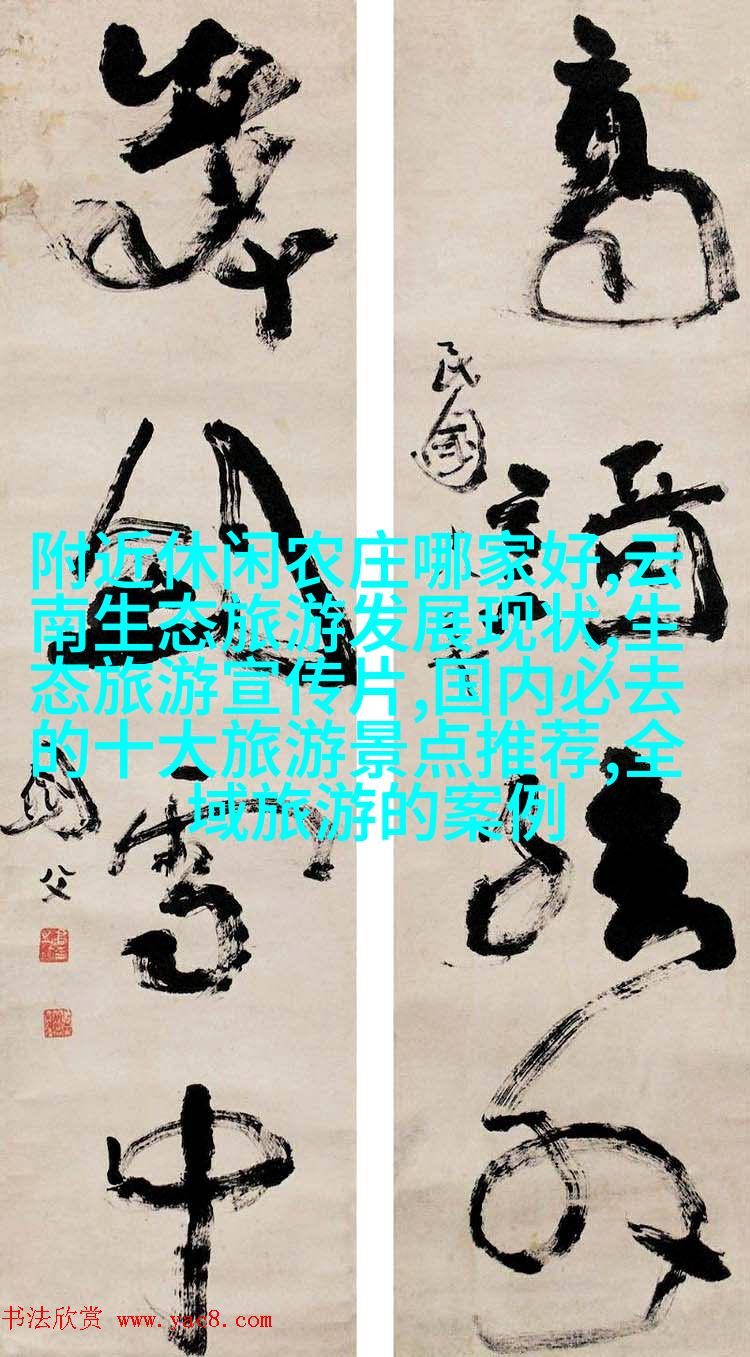 高
民國
附近休闲农庄哪家好,云
南生态旅游发展现状,生
态旅游宣传片,国内必去
的十大旅游景点推荐,全
域旅游的案例
雪中
父
书法欣赏 www.yac8.com